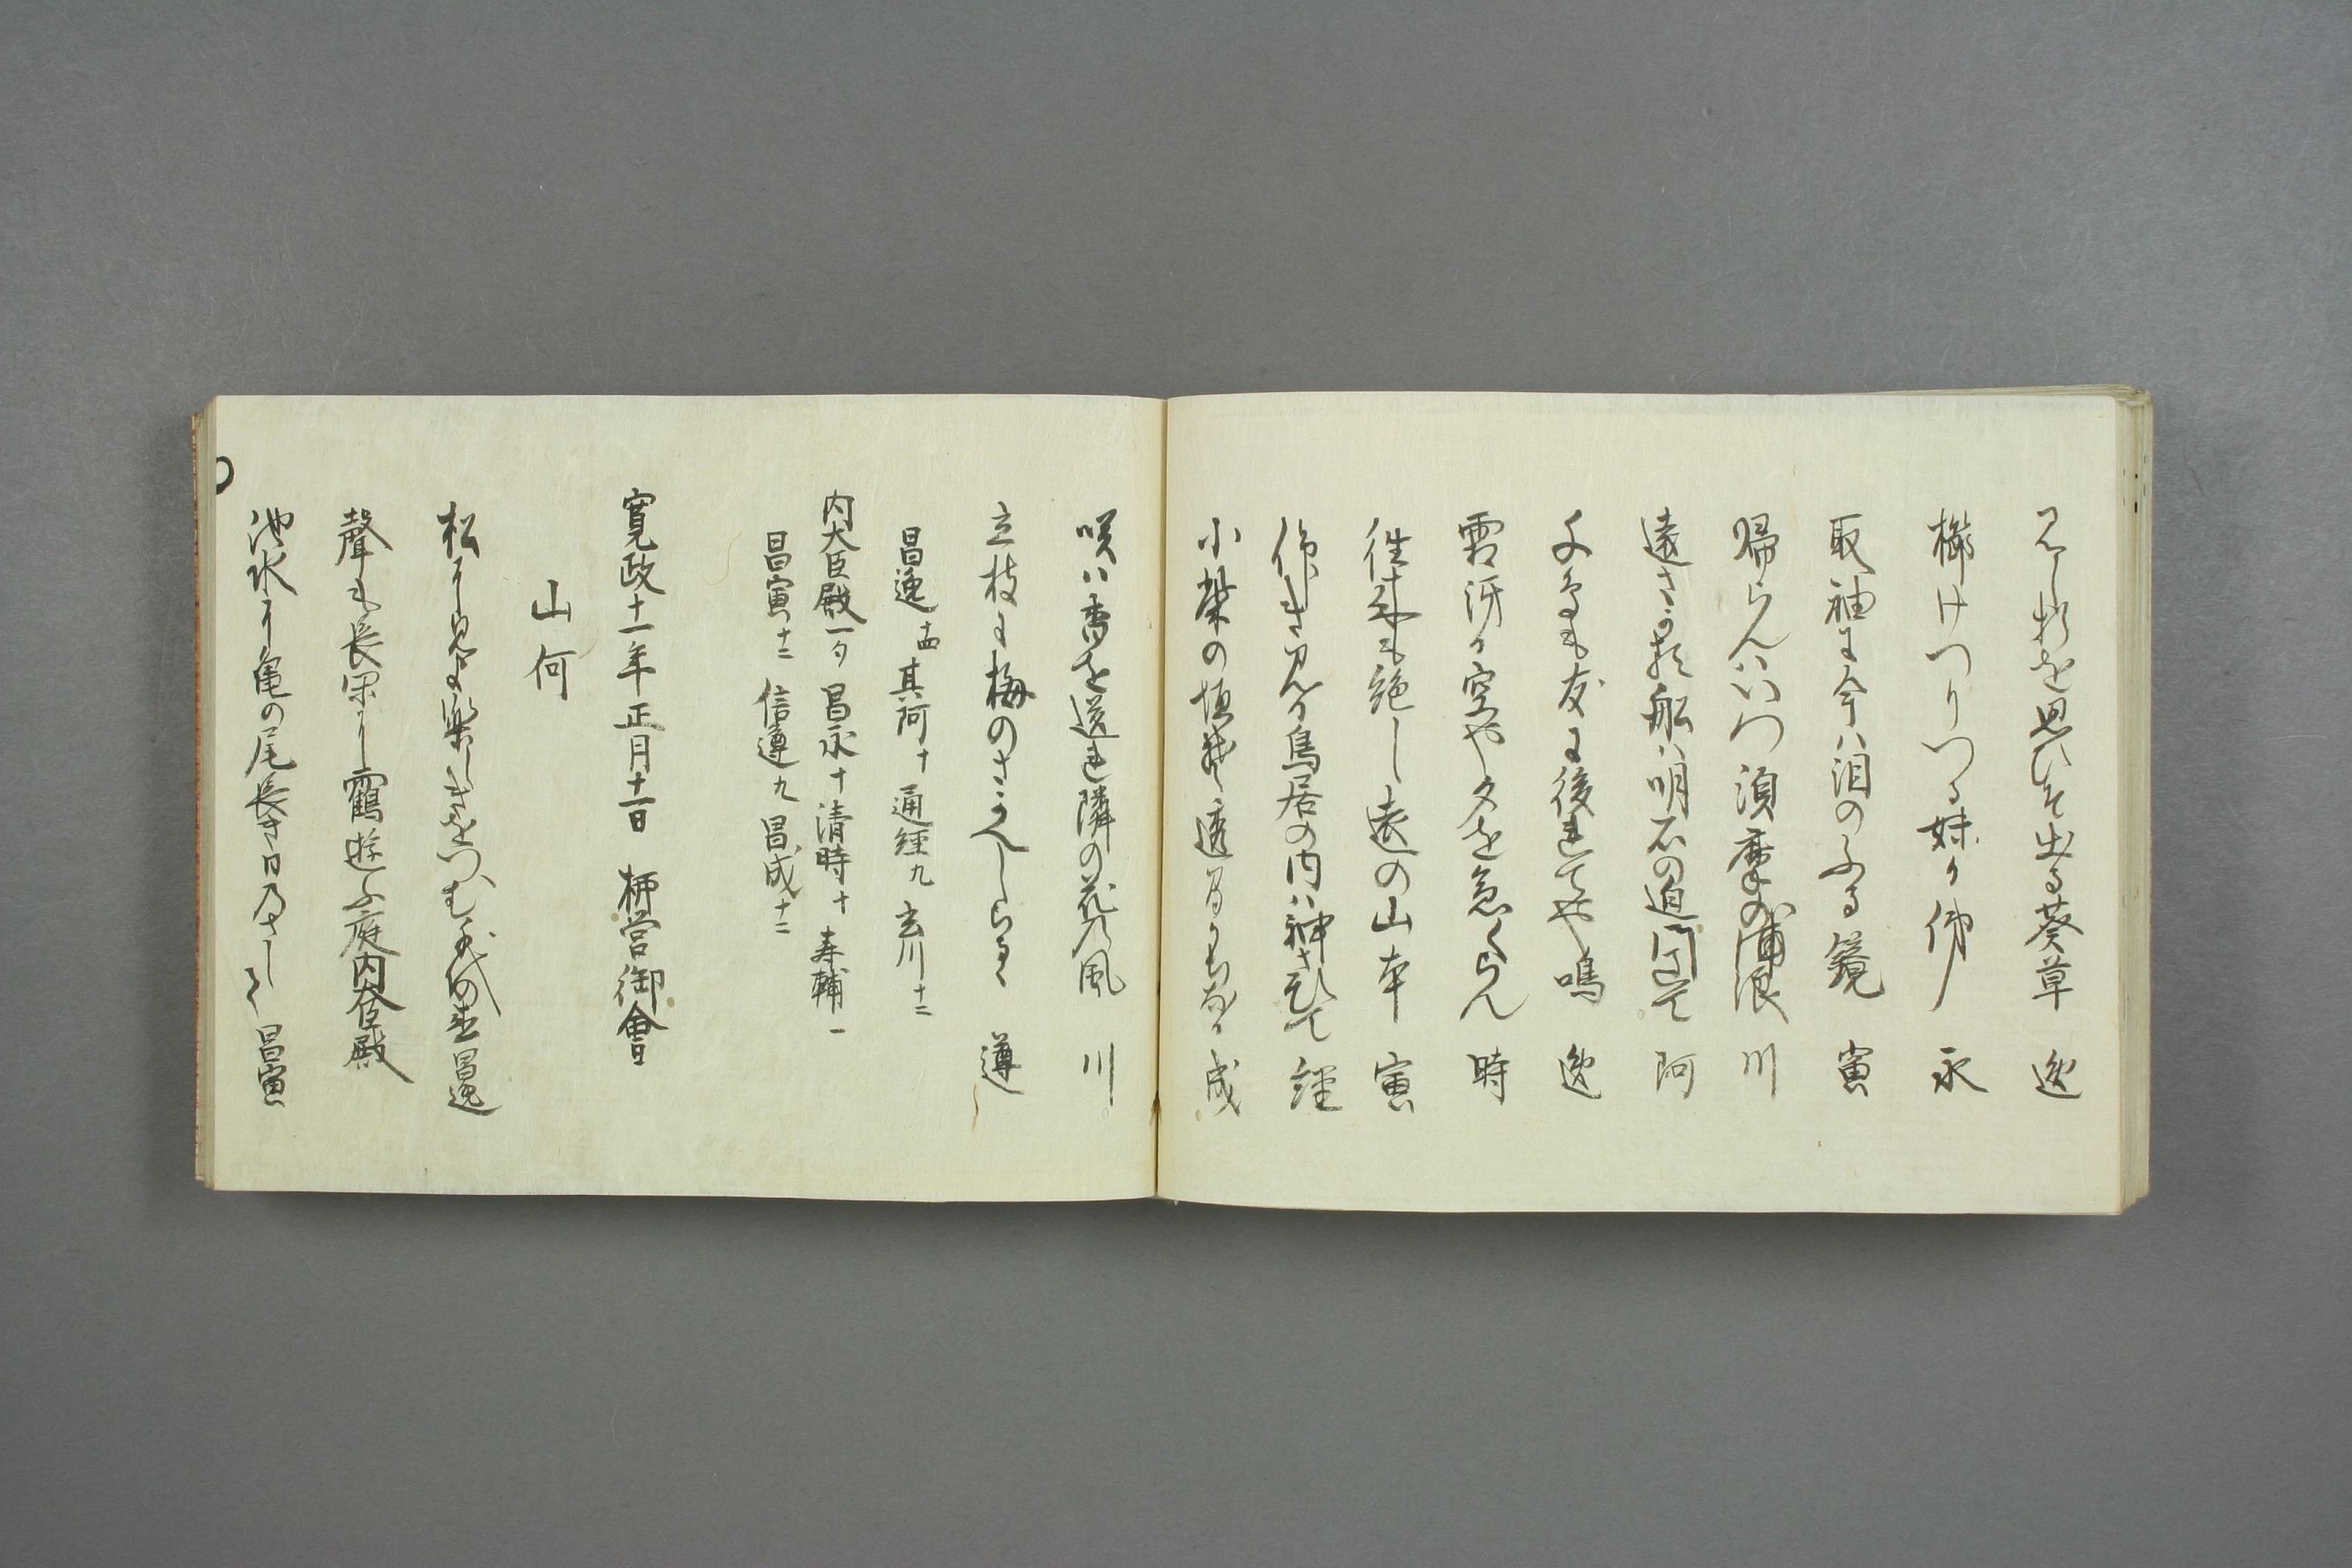 折を思ひそ出る葵草 逸
櫛けつりつる妹か俤 永
取袖に今ハ泪のふる鏡 寅
帰らんハいつ須磨の浦浪 川
遠さかる船ハ明石の迫門こして 阿
千鳥も友に後れてや鳴 逸
霜冴る空や夕を急くらん 時
往来も絶し遠の山本 寅
作きみる鳥居の内ハ神さひて 経
小柴の垣ほ透間るなり 成
咲ハ香を送れ隣の花の風 川
立枝に梅のさかへしらるゝ 遵
昌逸 十四 其阿 十 通経 九 玄川 十二
内大臣殿 一句 昌永 十 清時 十 寿輔 一
昌寅 十二 信遵 九 昌成 十二
寛政十一年正月十一日 柳営御會
山何
松に見よ楽しきをつむ千代の春 昌逸
聲も長閑し靄遊ふ庭 内大臣殿
池水に亀の尾長き日のさして 昌寅